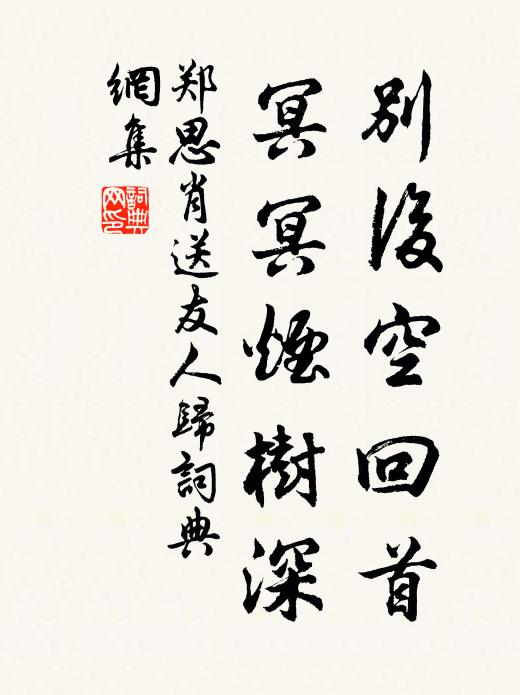 別後空回首
冥冥煙樹深
郑思肖送友人歸詞典
網集
詞典网印